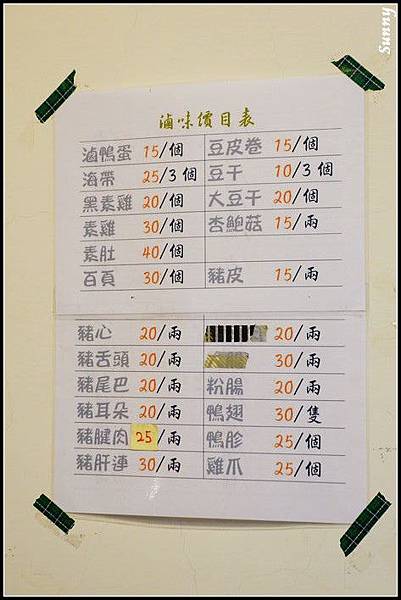 Sunny
滷味價目表
滷鴨蛋 15/個 豆皮卷 15/個
海帶 25/3個 豆干 10/3個
黑素雞 20/個 大豆干 20/個
素雞 30/個 杏鮑菇 15/兩
素肚 40/個
百頁 30/個 豬皮 15/兩
豬心 20/兩 20/兩
豬舌頭 20/兩 30/兩
豬尾巴 20/兩 粉腸 20/兩
豬耳朵 20/兩 鴨翅 30/隻
豬腱肉 25/兩 鴨胗 25/個
豬肝連 30/兩 雞爪 25/個